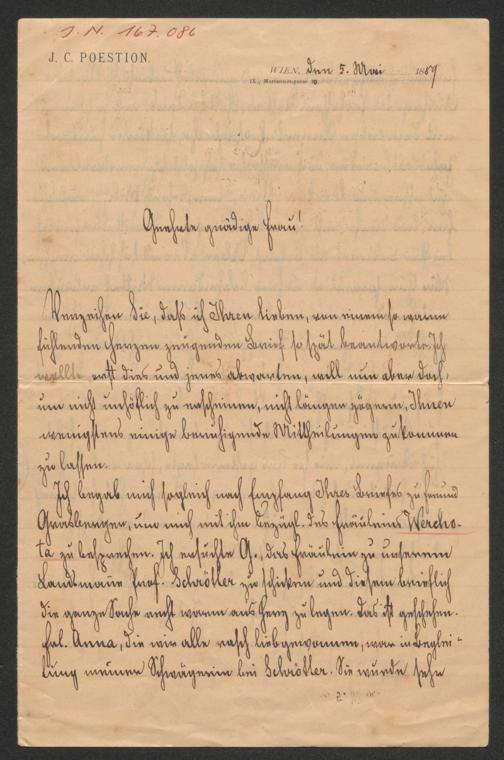 J. N. 167.086
J. C. POESTION.
WIEN, den 5. Mai 1889
IX., Mariannengasse
Geehrte gnädige Frau!
Verzeihen Sie, daß ich Ihren lieben, von einem so warm
fühlenden Herzen zeugenden Brief so spät beantworte. Ich
wollte erst dies und jenes abwarten, will nun aber doch,
um nicht unhöflich zu erscheinen, nicht länger zögern, Ihnen
wenigstens einige beruhigende Mittheilungen zukommen
zu lassen.
Ich begab mich sogleich nach Empfang Ihres Briefes zu Freund
Grasberger, um mich mit ihm bezügl. des Fräuleins Wercho-
ta zu besprechen. Ich ersuchte G., das Fräulein zu unserem
Landsmann Prof. Schrötter zu schicken und diesem brieflich
die ganze Sache recht warm ans Herz zu legen. Das ist geschehen.
Frl. Anna, die wir alle rasch liebgewonnen, war in Beglei-
tung meiner Schwägerin bei Schrötter. Sie wurde sehr